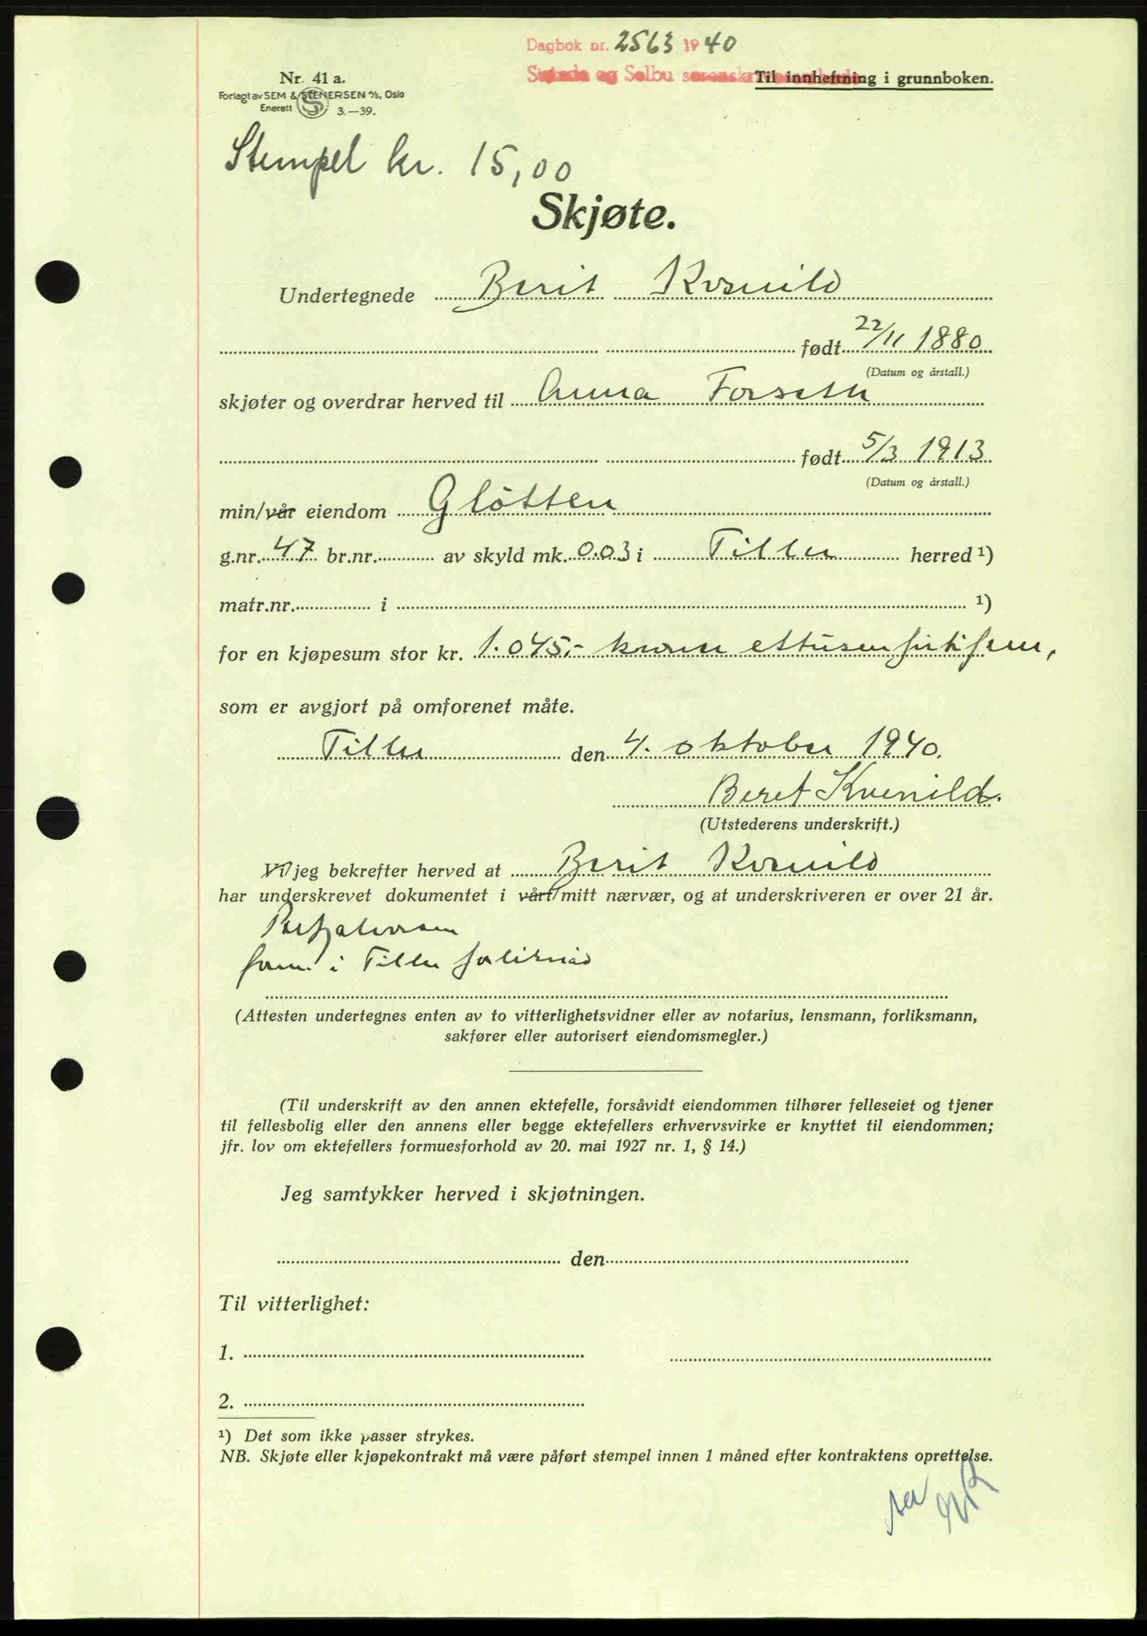 Dagbok nr. 2563 1940
Strinda og Selbu sorenskriverembede
Til innheftning i grunnboken.
Nr. 41 a.
Forlagt av SEM & STENERSEN A/S, Oslo
Enerett 3.—39.
Stempel kr. 15,00
Skjøte.
Undertegnede Berit Kvenild
født 22/11 1880
(Datum og årstall.)
skjøter og overdrar herved til Anna Forseth
født 5/3 1913
(Datum og årstall.)
min/vår eiendom Gløtten
g.nr. 47 br.nr. av skyld mk. 0.03 i Tiller herred ¹)
matr.nr. i ¹)
for en kjøpesum stor kr. 1.045,- kroner ettusenfirtifem,
som er avgjort på omforenet måte.
Tiller den 4. oktober 1940.
Beret Kvenild.
(Utstederens underskrift.)
Vi/jeg bekrefter herved at Berit Kvenild
har underskrevet dokumentet i vårt/mitt nærvær, og at underskriveren er over 21 år.
form. i Tiller forliksråd
(Attesten undertegnes enten av to vitterlighetsvidner eller av notarius, lensmann, forliksmann,
sakfører eller autorisert eiendomsmegler.)
(Til underskrift av den annen ektefelle, forsåvidt eiendommen tilhører felleseiet og tjener
til fellesbolig eller den annens eller begge ektefellers erhvervsvirke er knyttet til eiendommen;
jfr. lov om ektefellers formuesforhold av 20. mai 1927 nr. 1, § 14.)
Jeg samtykker herved i skjøtningen.
den
Til vitterlighet:
1.
2.
¹) Det som ikke passer strykes.
NB. Skjøte eller kjøpekontrakt må være påført stempel innen 1 måned efter kontraktens oprettelse.